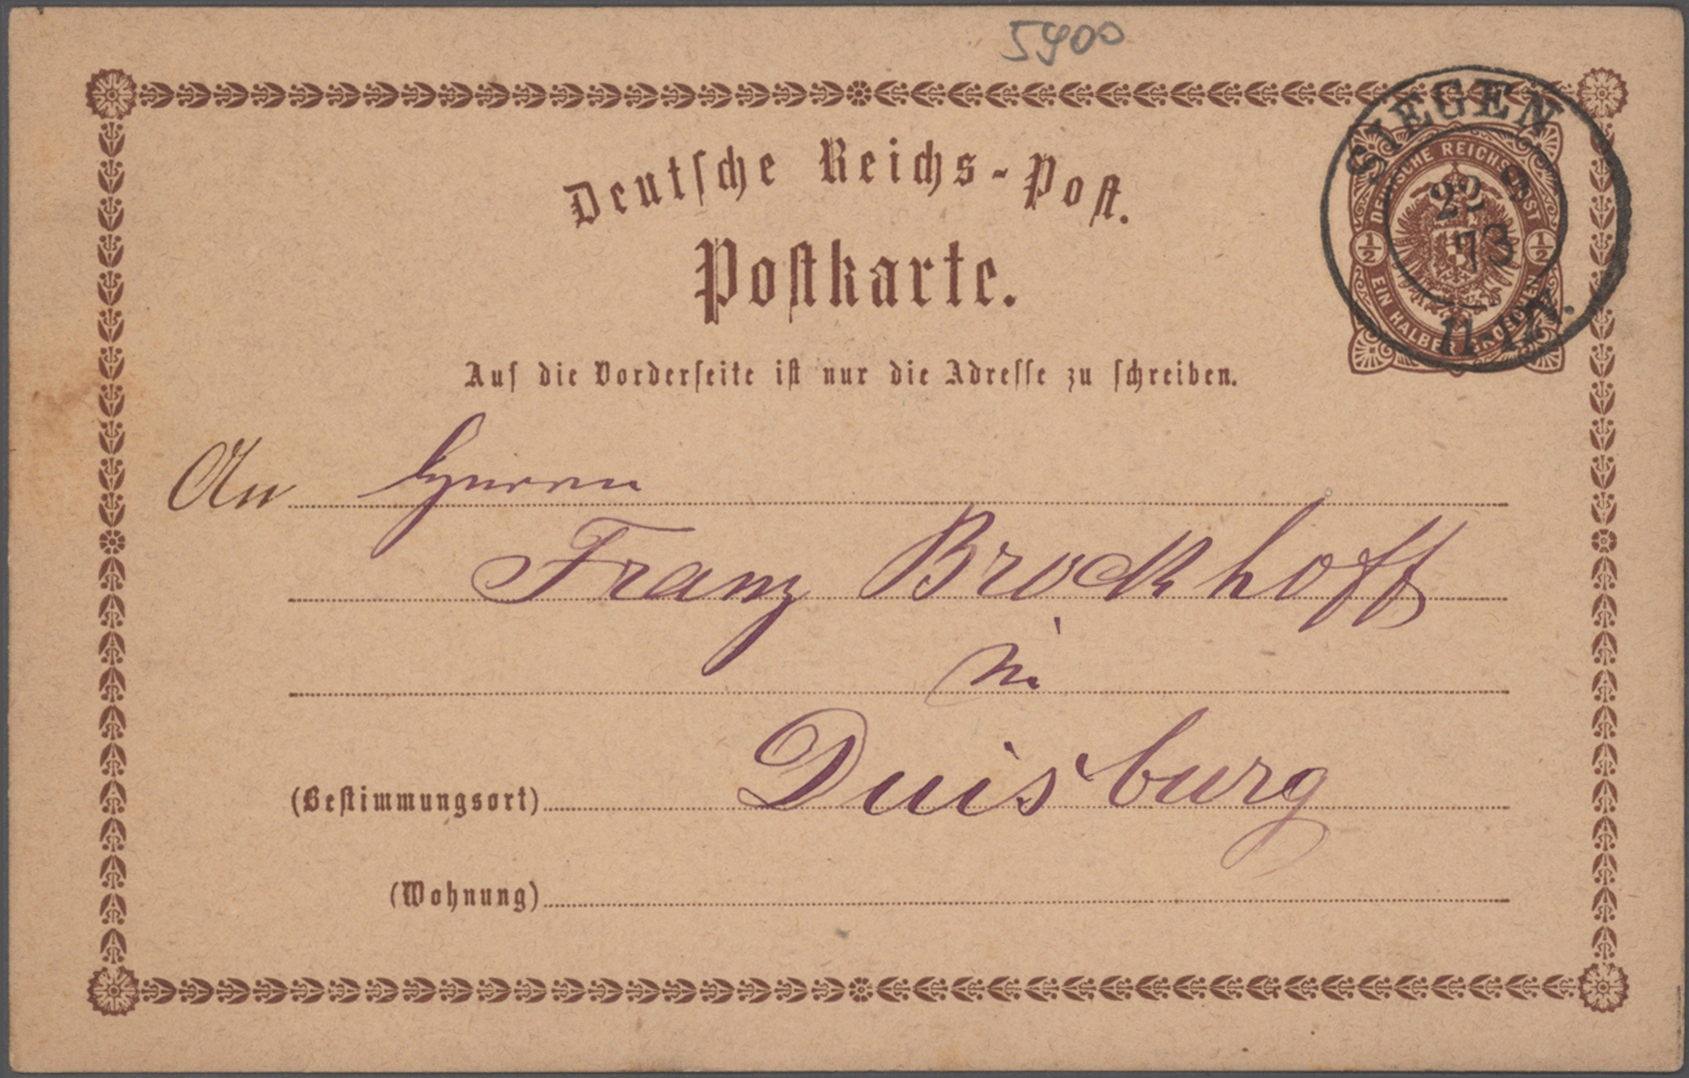 5400
Deutsche Reichs-Post.
Postkarte.
SIEGEN
22 9
73
11-12 V.
DEUTSCHE REICHSPOST
1/2 1/2
EIN HALBER GROSCHEN
Auf die Vorderseite ist nur die Adresse zu schreiben.
An Herrn
Franz Brockhoff
in
(Bestimmungsort) Duisburg
(Wohnung)